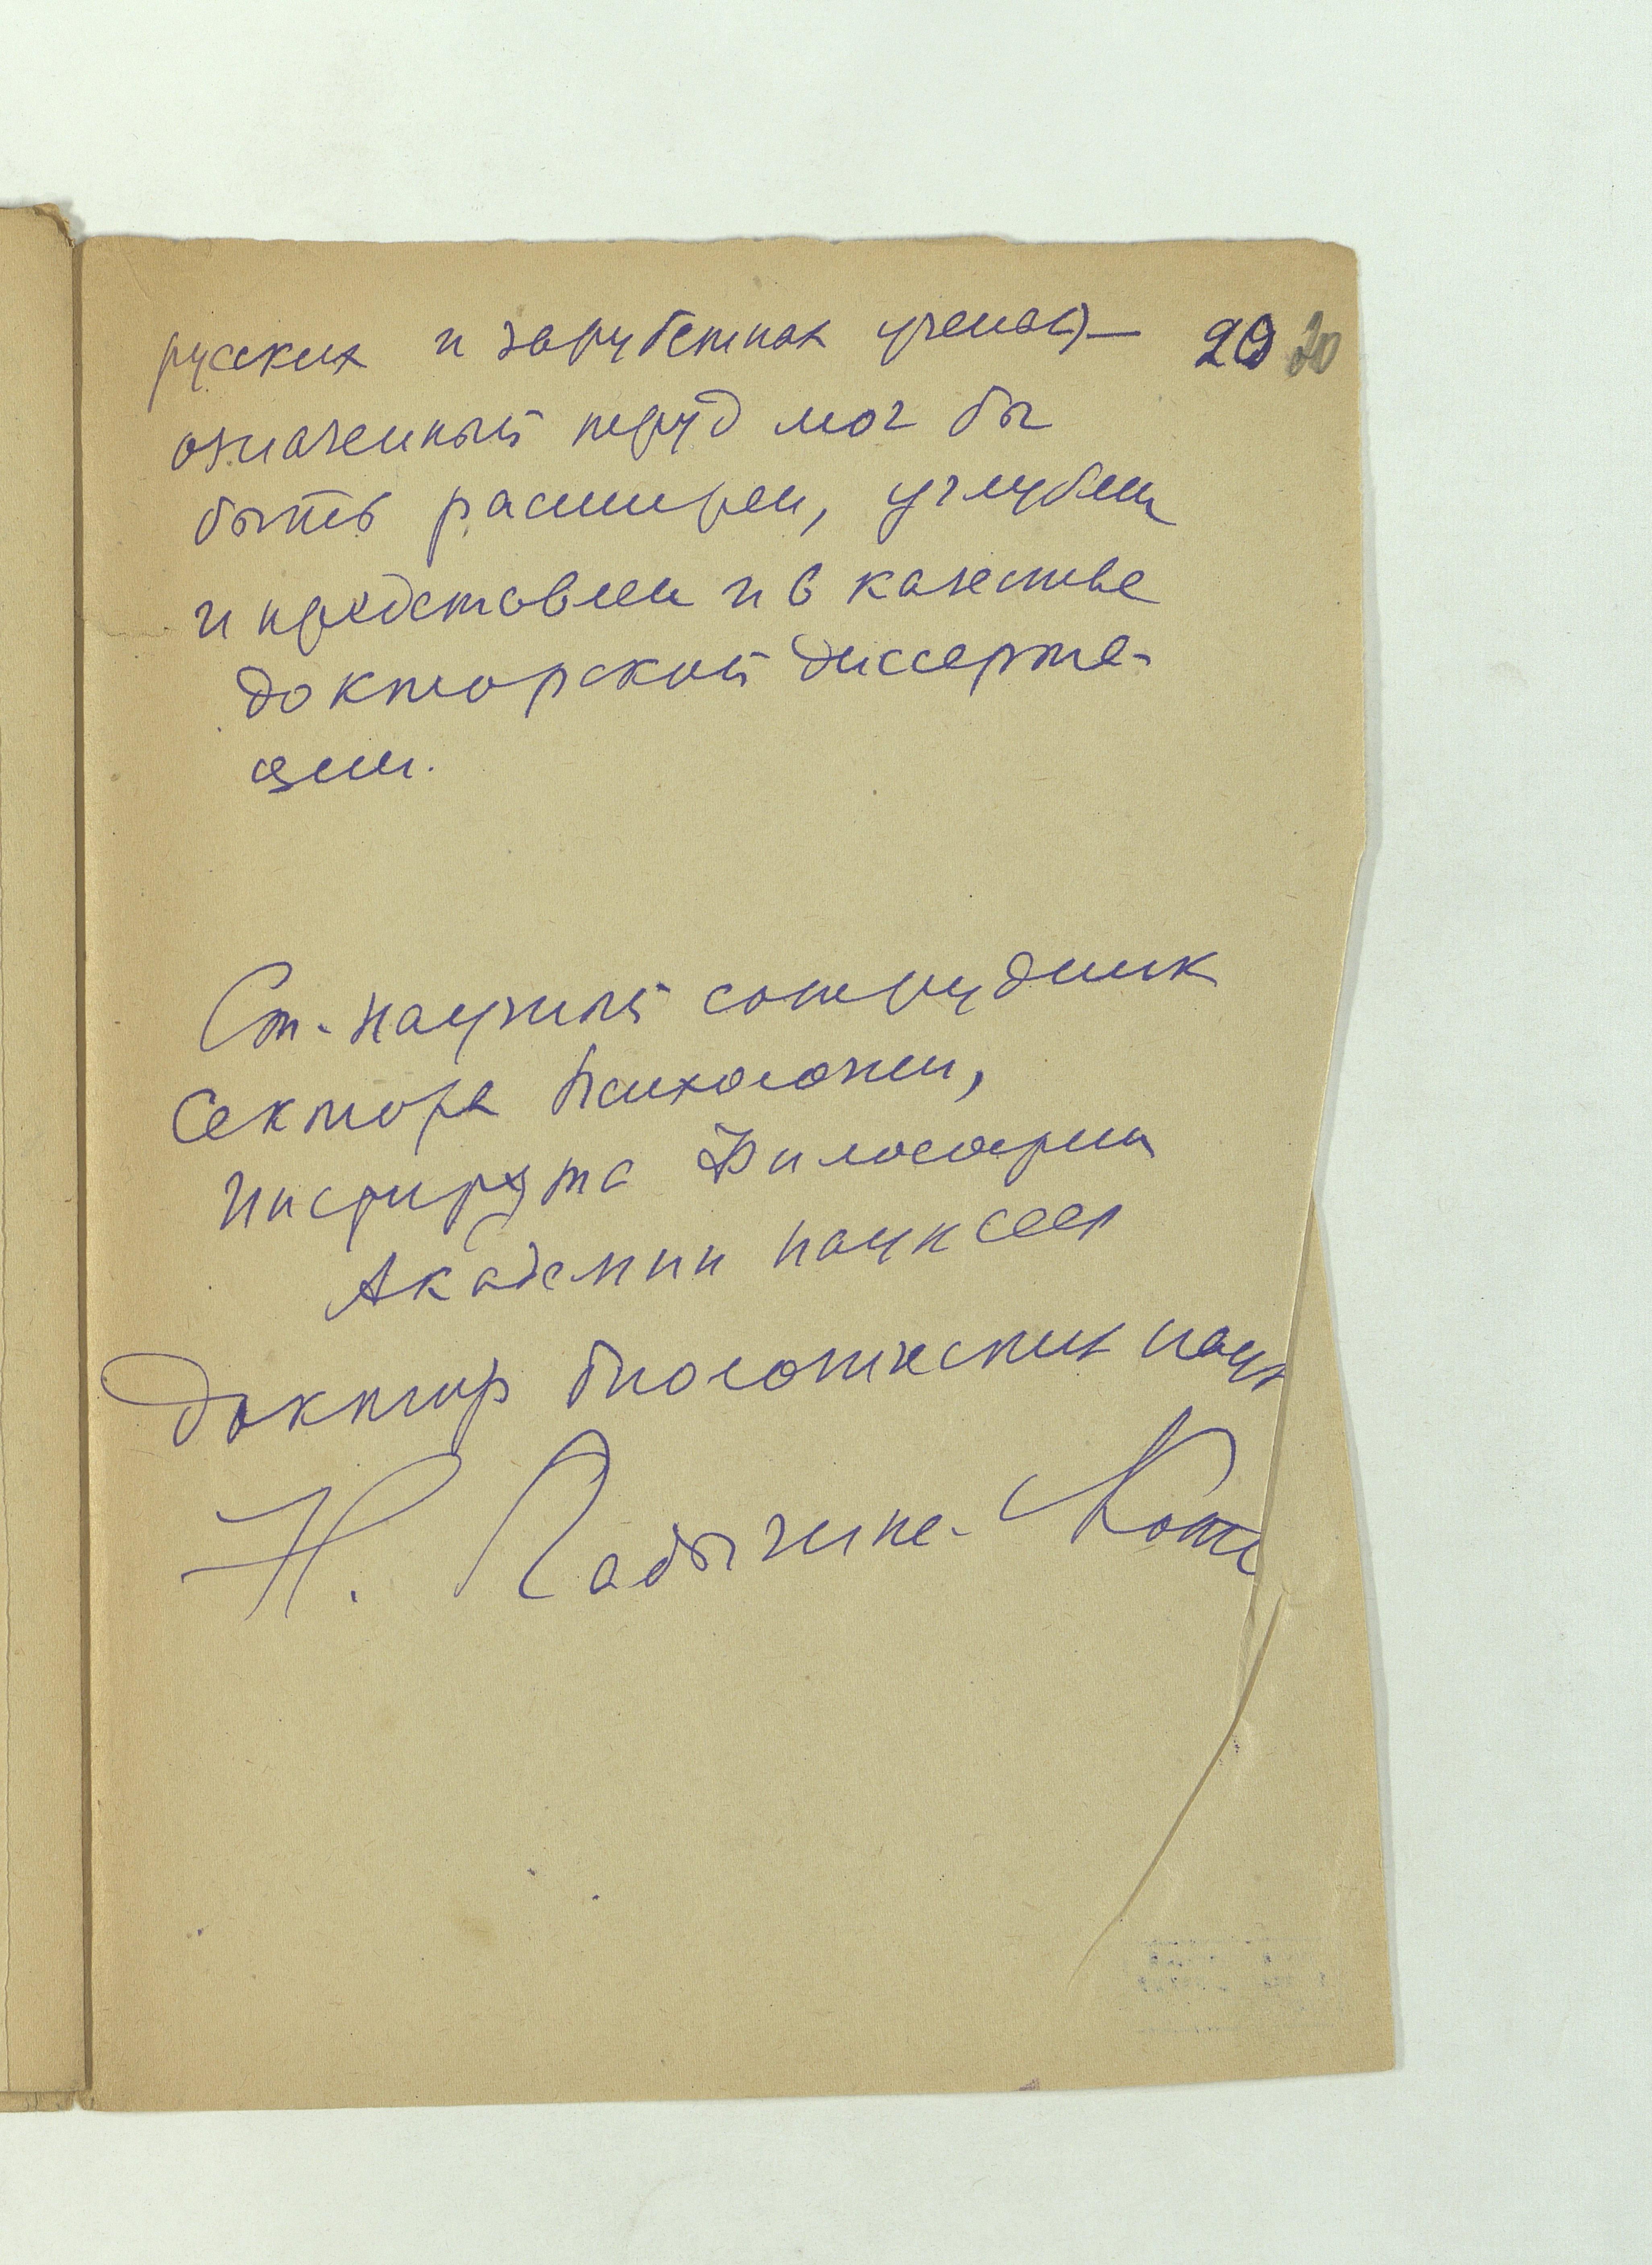 русских и зарубежных ученых) — 20 20
означенный труд мог бы
быть расширен, углублен
и представлен и в качестве
докторской диссерта-
ции.
Ст. научный сотрудник
Сектора Психологии,
Института Философии
Академии наук СССР
Доктор биологических наук
Н. Ладыгина-Котс